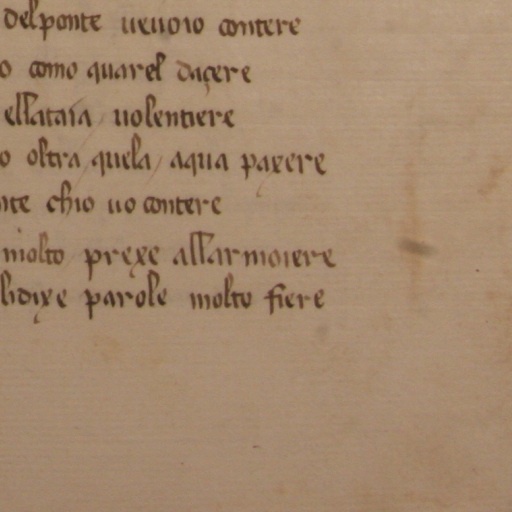 delponte ueuoio contere
o como quarel daçere
ellataia uolentiere
o oltra quela aqua paxere
nte chio uo contere
molto prexe allarmoiere
lidixe parole molto fiere